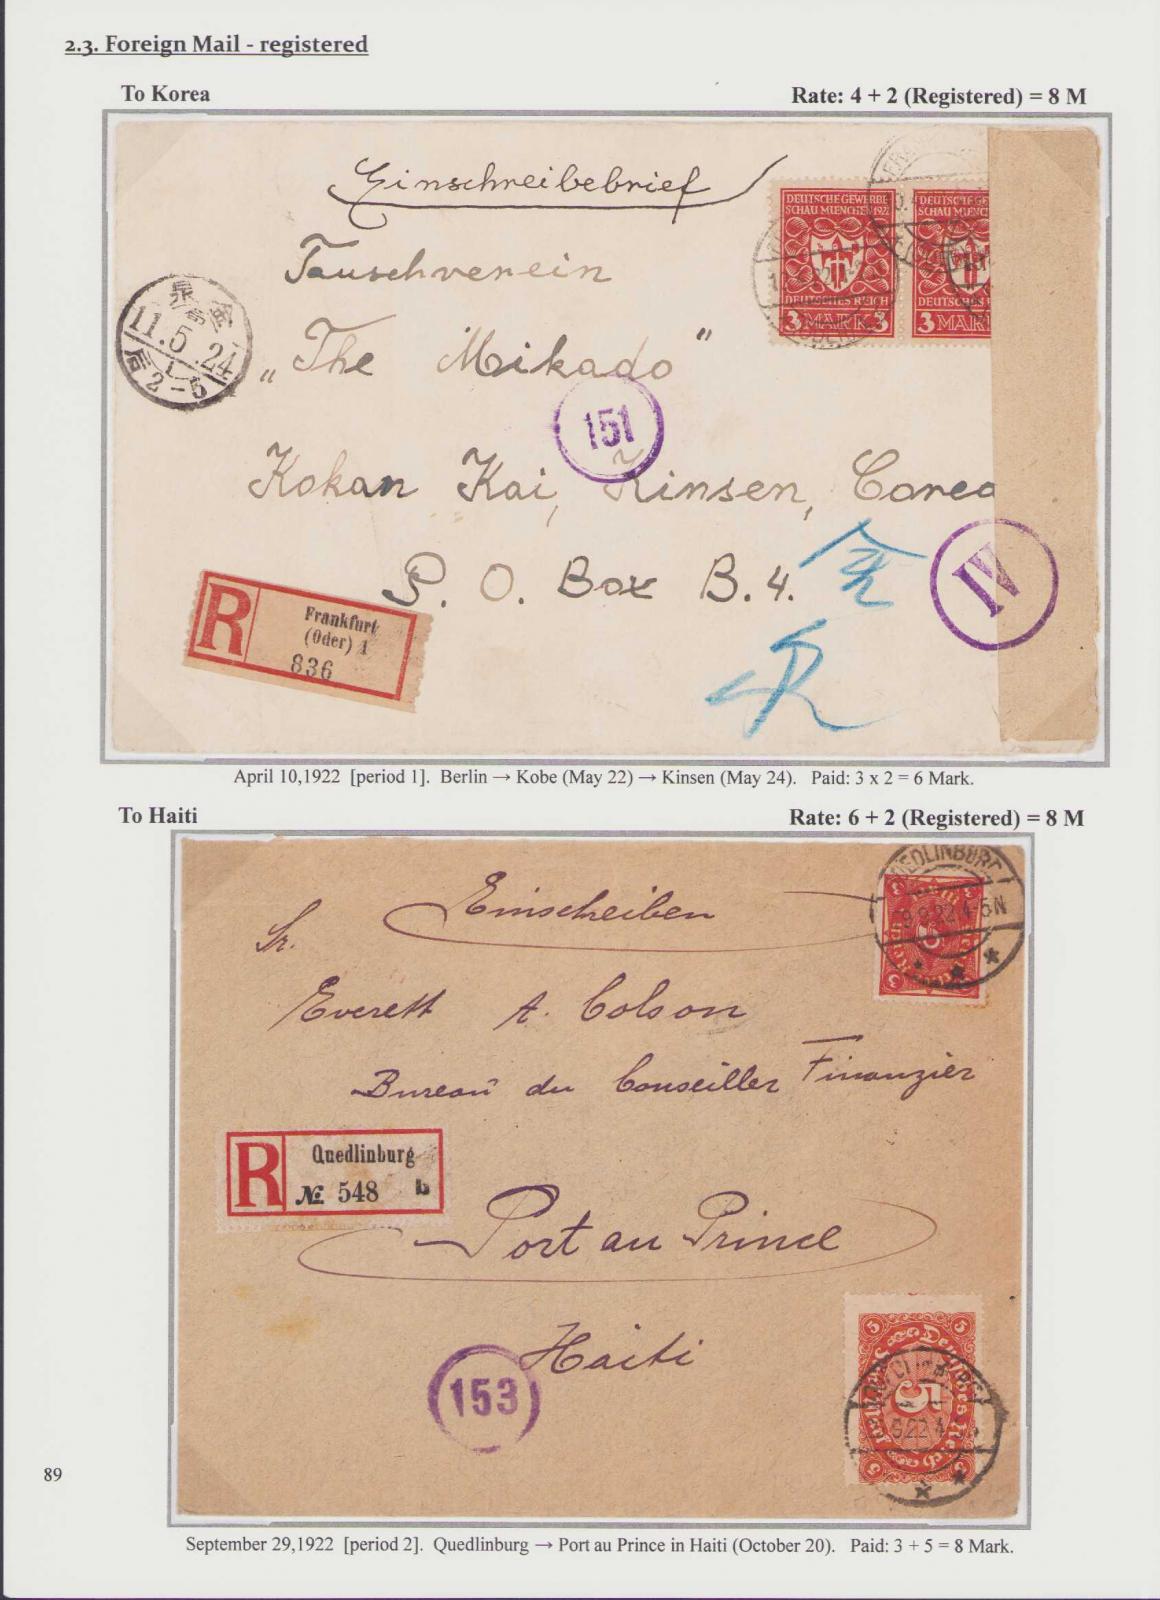 2.3. Foreign Mail - registered
To Korea
Rate: 4 + 2 (Registered) = 8 M
Einschreibebrief
DEUTSCHE GEWERBE
SCHAU MUENCHEN 1922
DEUTSCHES REICH
3 MARK 3
DEUTSCHE GE
SCHAU MUENC
DEUTSCHES
3 MAR
Tauschverein
„The Mikado"
11.5.24
后2-5
151
Kokan Kai, Kinsen, Corea
P. O. Box B.4.
IV
R
Frankfurt
(Oder) 1
836
April 10,1922 [period 1]. Berlin → Kobe (May 22) → Kinsen (May 24). Paid: 3 x 2 = 6 Mark.
To Haiti
Rate: 6 + 2 (Registered) = 8 M
Einscheiben
EDLINBURG
9.22.4-5N
Sr.
Everett A. Colson
Bureau du Conseiller Finanzier
R
Quedlinburg
№ 548 b
Port au Prince
Haiti
153
5
89
September 29,1922 [period 2]. Quedlinburg → Port au Prince in Haiti (October 20). Paid: 3 + 5 = 8 Mark.